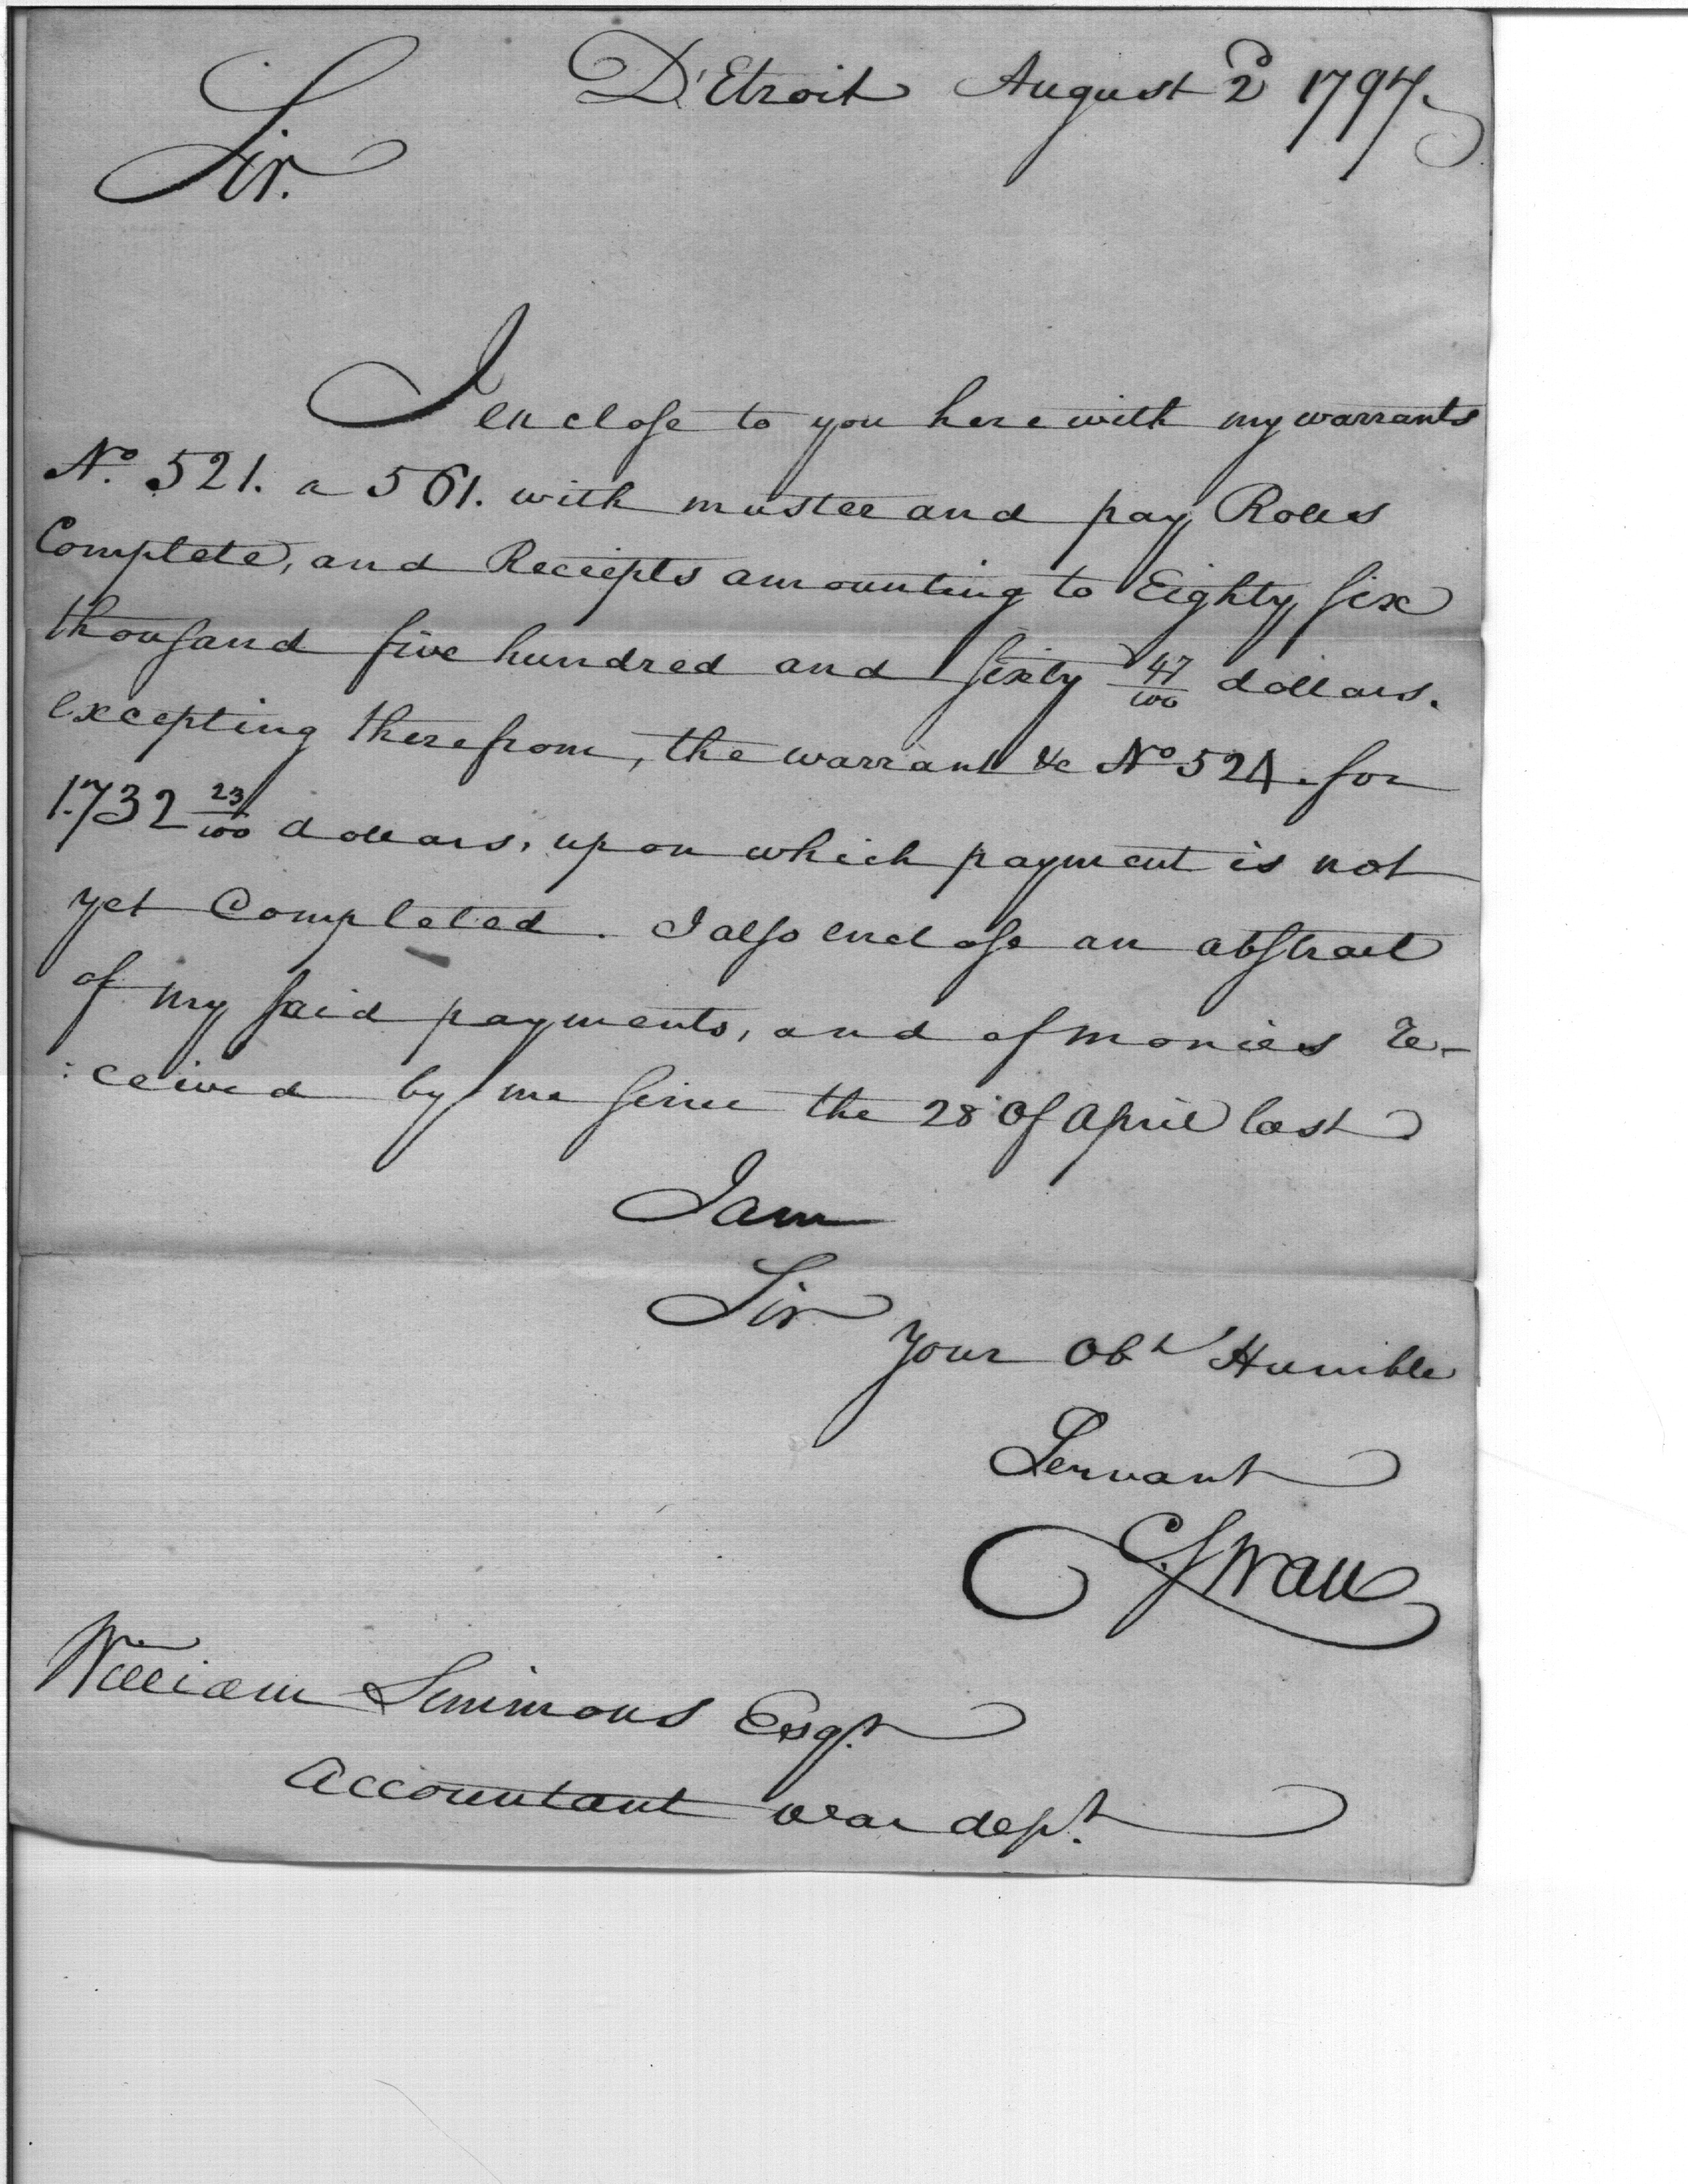 D'Etroit August 2d 1797.
Sir.
I enclose to you herewith my warrants
No. 521. a 561. with muster and pay Rolls
Complete, and Receipts amounting to Eighty six
thousand five hundred and sixty 47/100 dollars.
excepting therefrom, the warrant &c No 524. for
1.732 23/100 dollars, upon which payment is not
yet Completed. I also enclose an abstract
of my said payments, and of monies re-
:ceived by me since the 28 of April last
I am
Sir
your Obt Humble
Servant
C. Swan
William Simmons Esqr.
Accountant war dept.